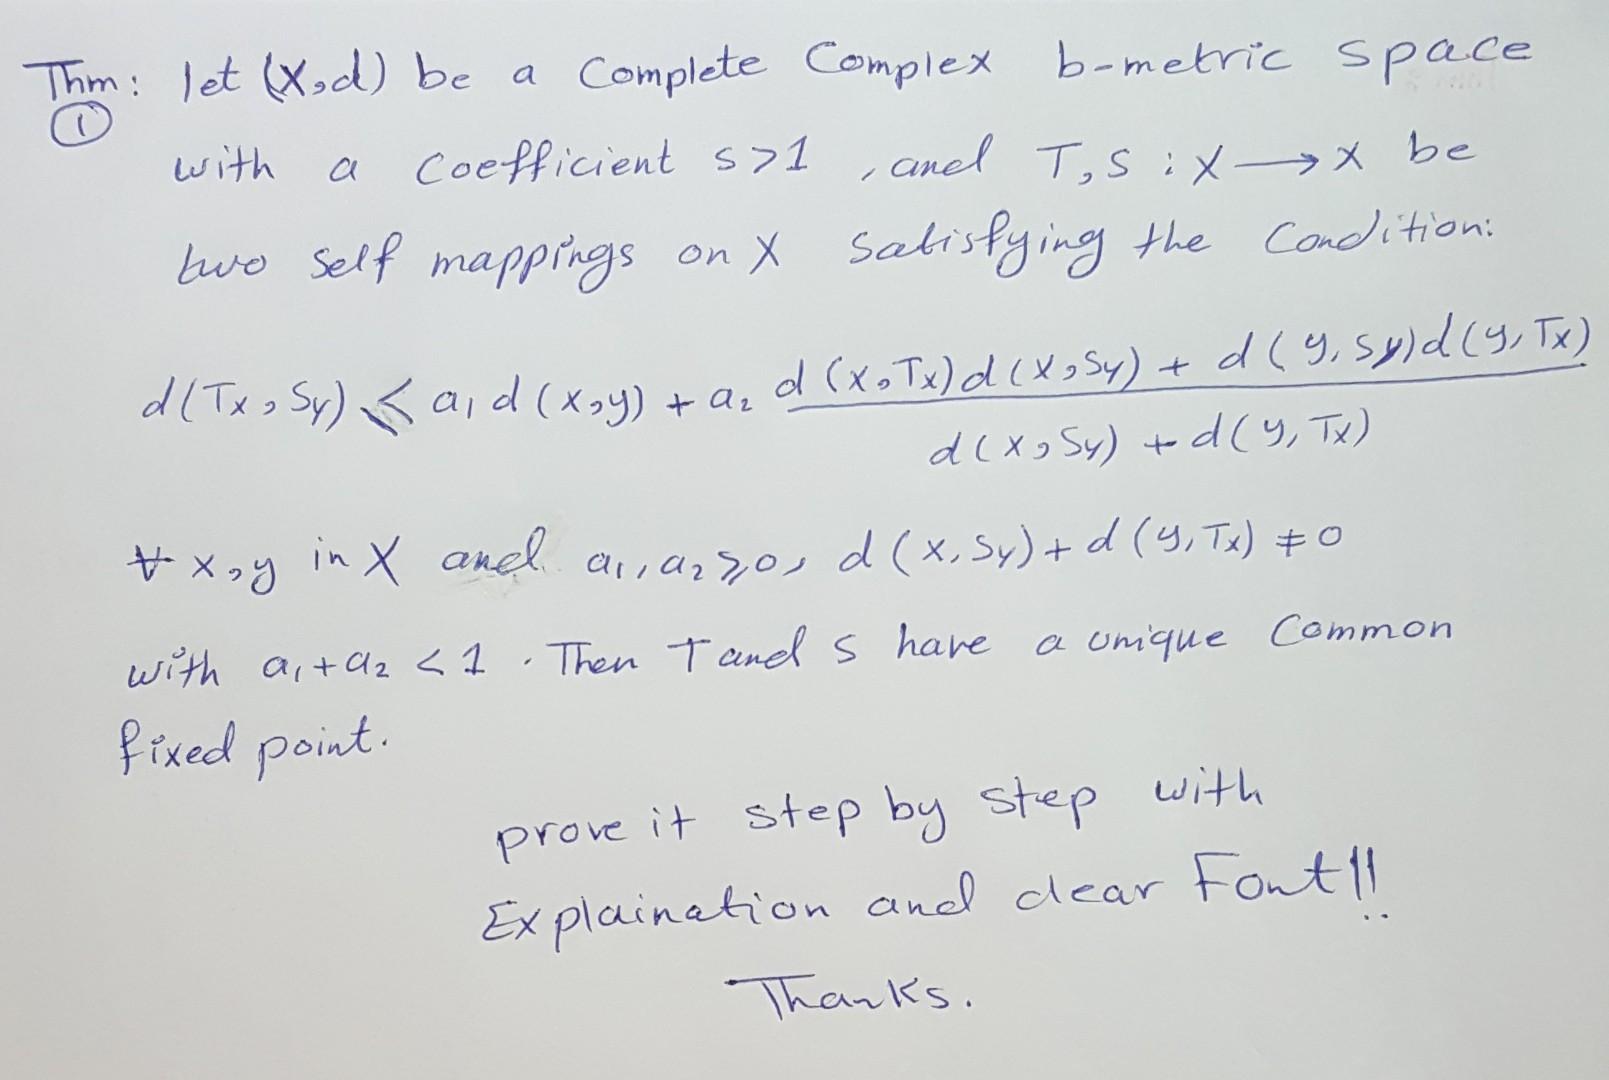 Thm: let (X,d) be a Complete Complex b-metric space
①
with a Coefficient s>1, and T,S : X⟶X be
two self mappings on X Satisfying the Condition:
d(Tx, Sy) ≤ a₁ d(x,y) + a₂ d(x,Tx)d(x,Sy) + d(y,Sy)d(y,Tx)
d(x,Sy) + d(y,Tx)
∀ x,y in X and a₁,a₂ ≥ 0, d(x,Sy) + d(y,Tx) ≠ 0
with a₁+a₂ < 1. Then T and S have a unique Common
fixed point.
prove it step by step with
Explaination and clear Font!!
Thanks.